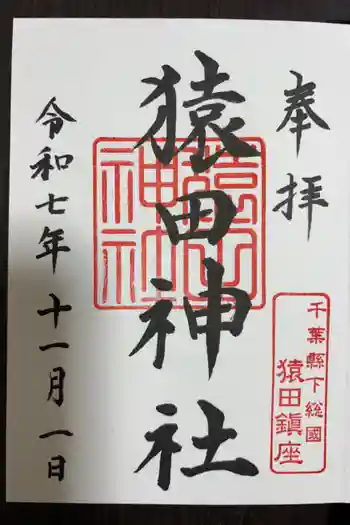 奉拝
千葉縣下総國
猿田鎮座
猿田神社
猿田神社
令和七年十一月一日